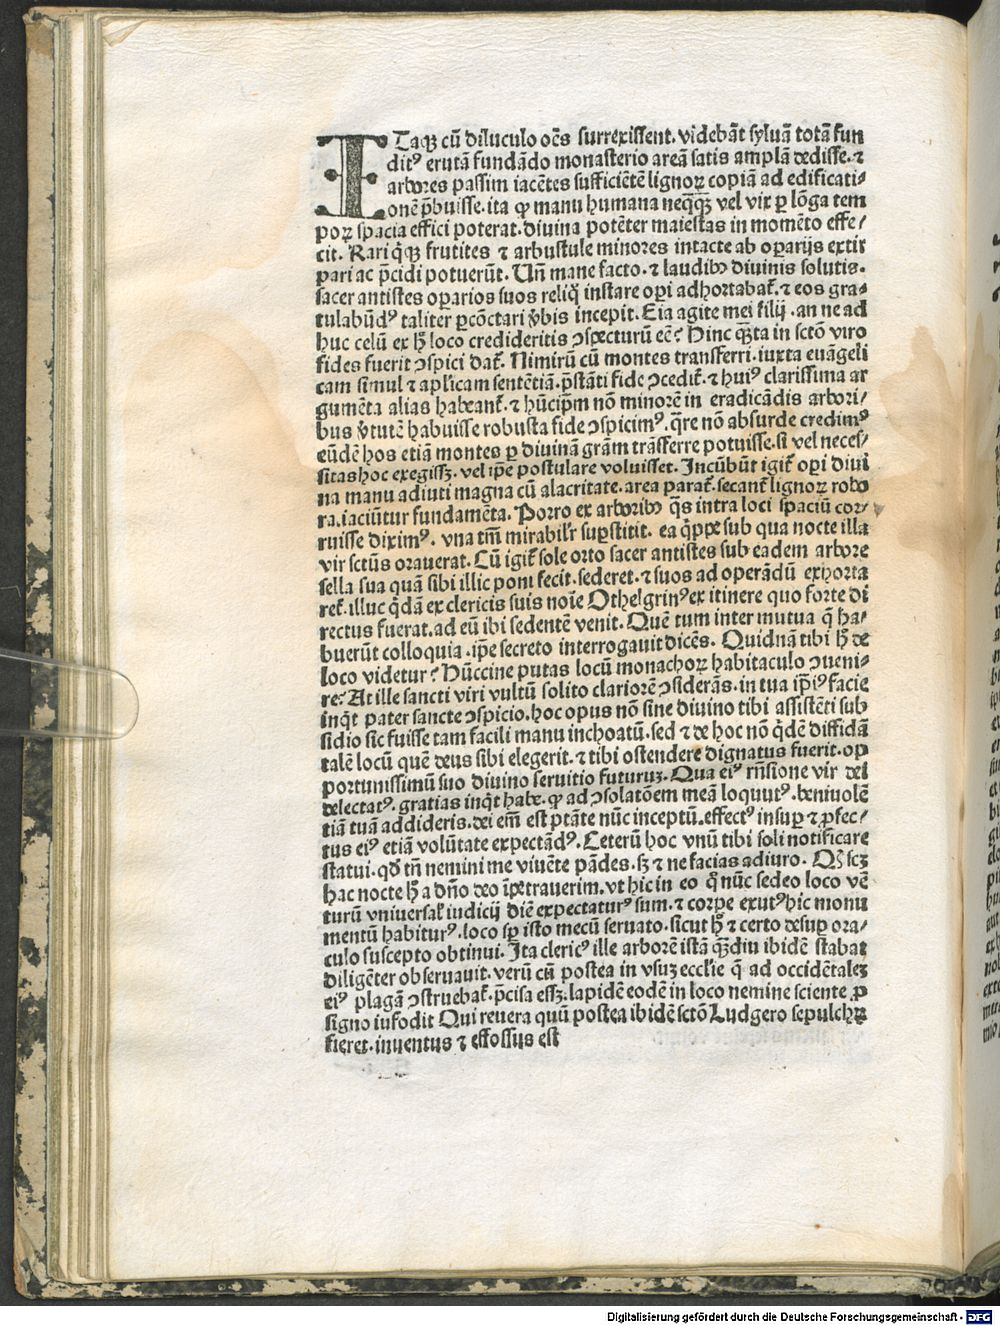 ITaqꝫ cū diluculo oēs surrexissent. videbāt sylvā totā fun
ditꝰ erutā fundādo monasterio areā satis amplā dedisse. ⁊
arbores passim iacētes sufficiētē lignoꝝ copiā ad edificati⸗
onē p̄buisse. ita ꝙ manu humana neq̄ꝗꝫ vel vix ꝑ lōga tem
poꝝ spacia effici poterat. divina potēter maiestas in momēto effe⸗
cit. Rari q̇ꝫ frutites ⁊ arbustule minores intacte ab oꝑarijs extir
pari ac p̄cidi potuerūt. Un̄ mane facto. ⁊ laudibꝰ divinis solutis.
sacer antistes oꝑarios suos reliq̄ instare oꝑi adhortabat̄. ⁊ eos gra⸗
tulabūdꝰ taliter ꝑcōctari v̄bis incepit. Eia agite mei filij. an ne ad
huc celū ex h̄ loco credideritis ↄspecturū eē? Hinc q̄ꝫta in sctō viro
fides fuerit ↄspici dat̄. Nimirū cū montes transferri. iuxta evāgeli
cam simul ⁊ aplicam sentētiā. p̄stāti fide ↄcedit̄. ⁊ huiꝰ clarissima ar
gumēta alias habeant̄. ⁊ hūcip̄m nō minorē in eradicādis arbori/
bus v̄tutē habuisse robusta fide ↄspicimꝰ. q̄re nō absurde credimꝰ
eūdē hos etiā montes ꝑ divinā grām trāsferre potuisse. si vel neces/
sitas hoc exegissꝫ. vel ip̄e postulare voluisset. Incūbūt igit̄ oꝑi divi
na manu adiuti magna cū alacritate. area parat̄. secant̄ lignoꝝ robo
ra. iaciūtur fundamēta. Porro ex arboribꝰ q̄s intra loci spaciū cor⸗
ruisse diximꝰ. vna tm̄ mirabilr̄ suꝑstitit. ea q̄ppe sub qua nocte illa
vir sctūs oraverat. Cū igit̄ sole orto sacer antistes sub eadem arbore
sella sua quā sibi illic poni fecit. sederet. ⁊ suos ad operādū exhorta
ret̄. illuc q̇dā ex clericis suis noīe Othelgrinꝰ ex itinere quo forte di
rectus fuerat. ad eū ibi sedentē venit. Quē tum inter mutua q̄ ha⸗
buerūt colloquia. ip̄e secreto interrogavit dicēs. Quidnā tibi h̄ de
loco videtur? Hūccine putas locū monachoꝝ habitaculo ↄveni⸗
re? At ille sancti viri vultū solito clariorē ↄsiderās. in tua ip̄iꝰ facie
inq̇t pater sancte ↄspicio. hoc opus nō sine divino tibi assistēti sub
sidio sic fuisse tam facili manu inchoatū. sed ⁊ de hoc nō q̇dē diffidā
talē locū quē deus sibi elegerit. ⁊ tibi ostendere dignatus fuerit. op
portunissimū suo divino servitio futuruꝫ. Qua eiꝰ rn̄sione vir dei
delectatꝰ. gratias inq̇t habe. ꝙ ad ↄsolatōem meā loquutꝰ. benivolē
tiā tuā addideris. dei em̄ est ptāte nūc inceptū. effectꝰ insuꝑ ⁊ ꝑfec/
tus eiꝰ etiā volūtate expectādꝰ. Ceterū hoc vnū tibi soli notificare
statui. qd̄ tn̄ nemini me vivēte pādes. sꝫ ⁊ ne facias adiuro. Qꝫ scꝫ
hac nocte h̄ a dn̄o deo īpetraverim. vt hic in eo q̄ nūc sedeo loco vē
turū vniversal̄ iudicij diē expectaturꝰ sum. ⁊ corꝑe exutꝰ hic monu
mentū habiturꝰ. loco sꝑ isto mecū servato. sicut h̄ ⁊ certo desuꝑ ora/
culo suscepto obtinui. Ita clericꝰ ille arborē istā q̄ꝫdiu ibidē stabat
diligēter observavit. verū cū postea in vsuꝫ ecclīe q̄ ad occidētaleꝫ
eiꝰ plagā ↄstruebat̄. p̄cisa essꝫ. lapidē eodē in loco nemine sciente ꝓ
signo iufodit Qui revera quū postea ibidē sctō Ludgero sepulchꝝ
fieret. inventus ⁊ effossus est
Digitalisierung gefördert durch die Deutsche Forschungsgemeinschaft - DFG